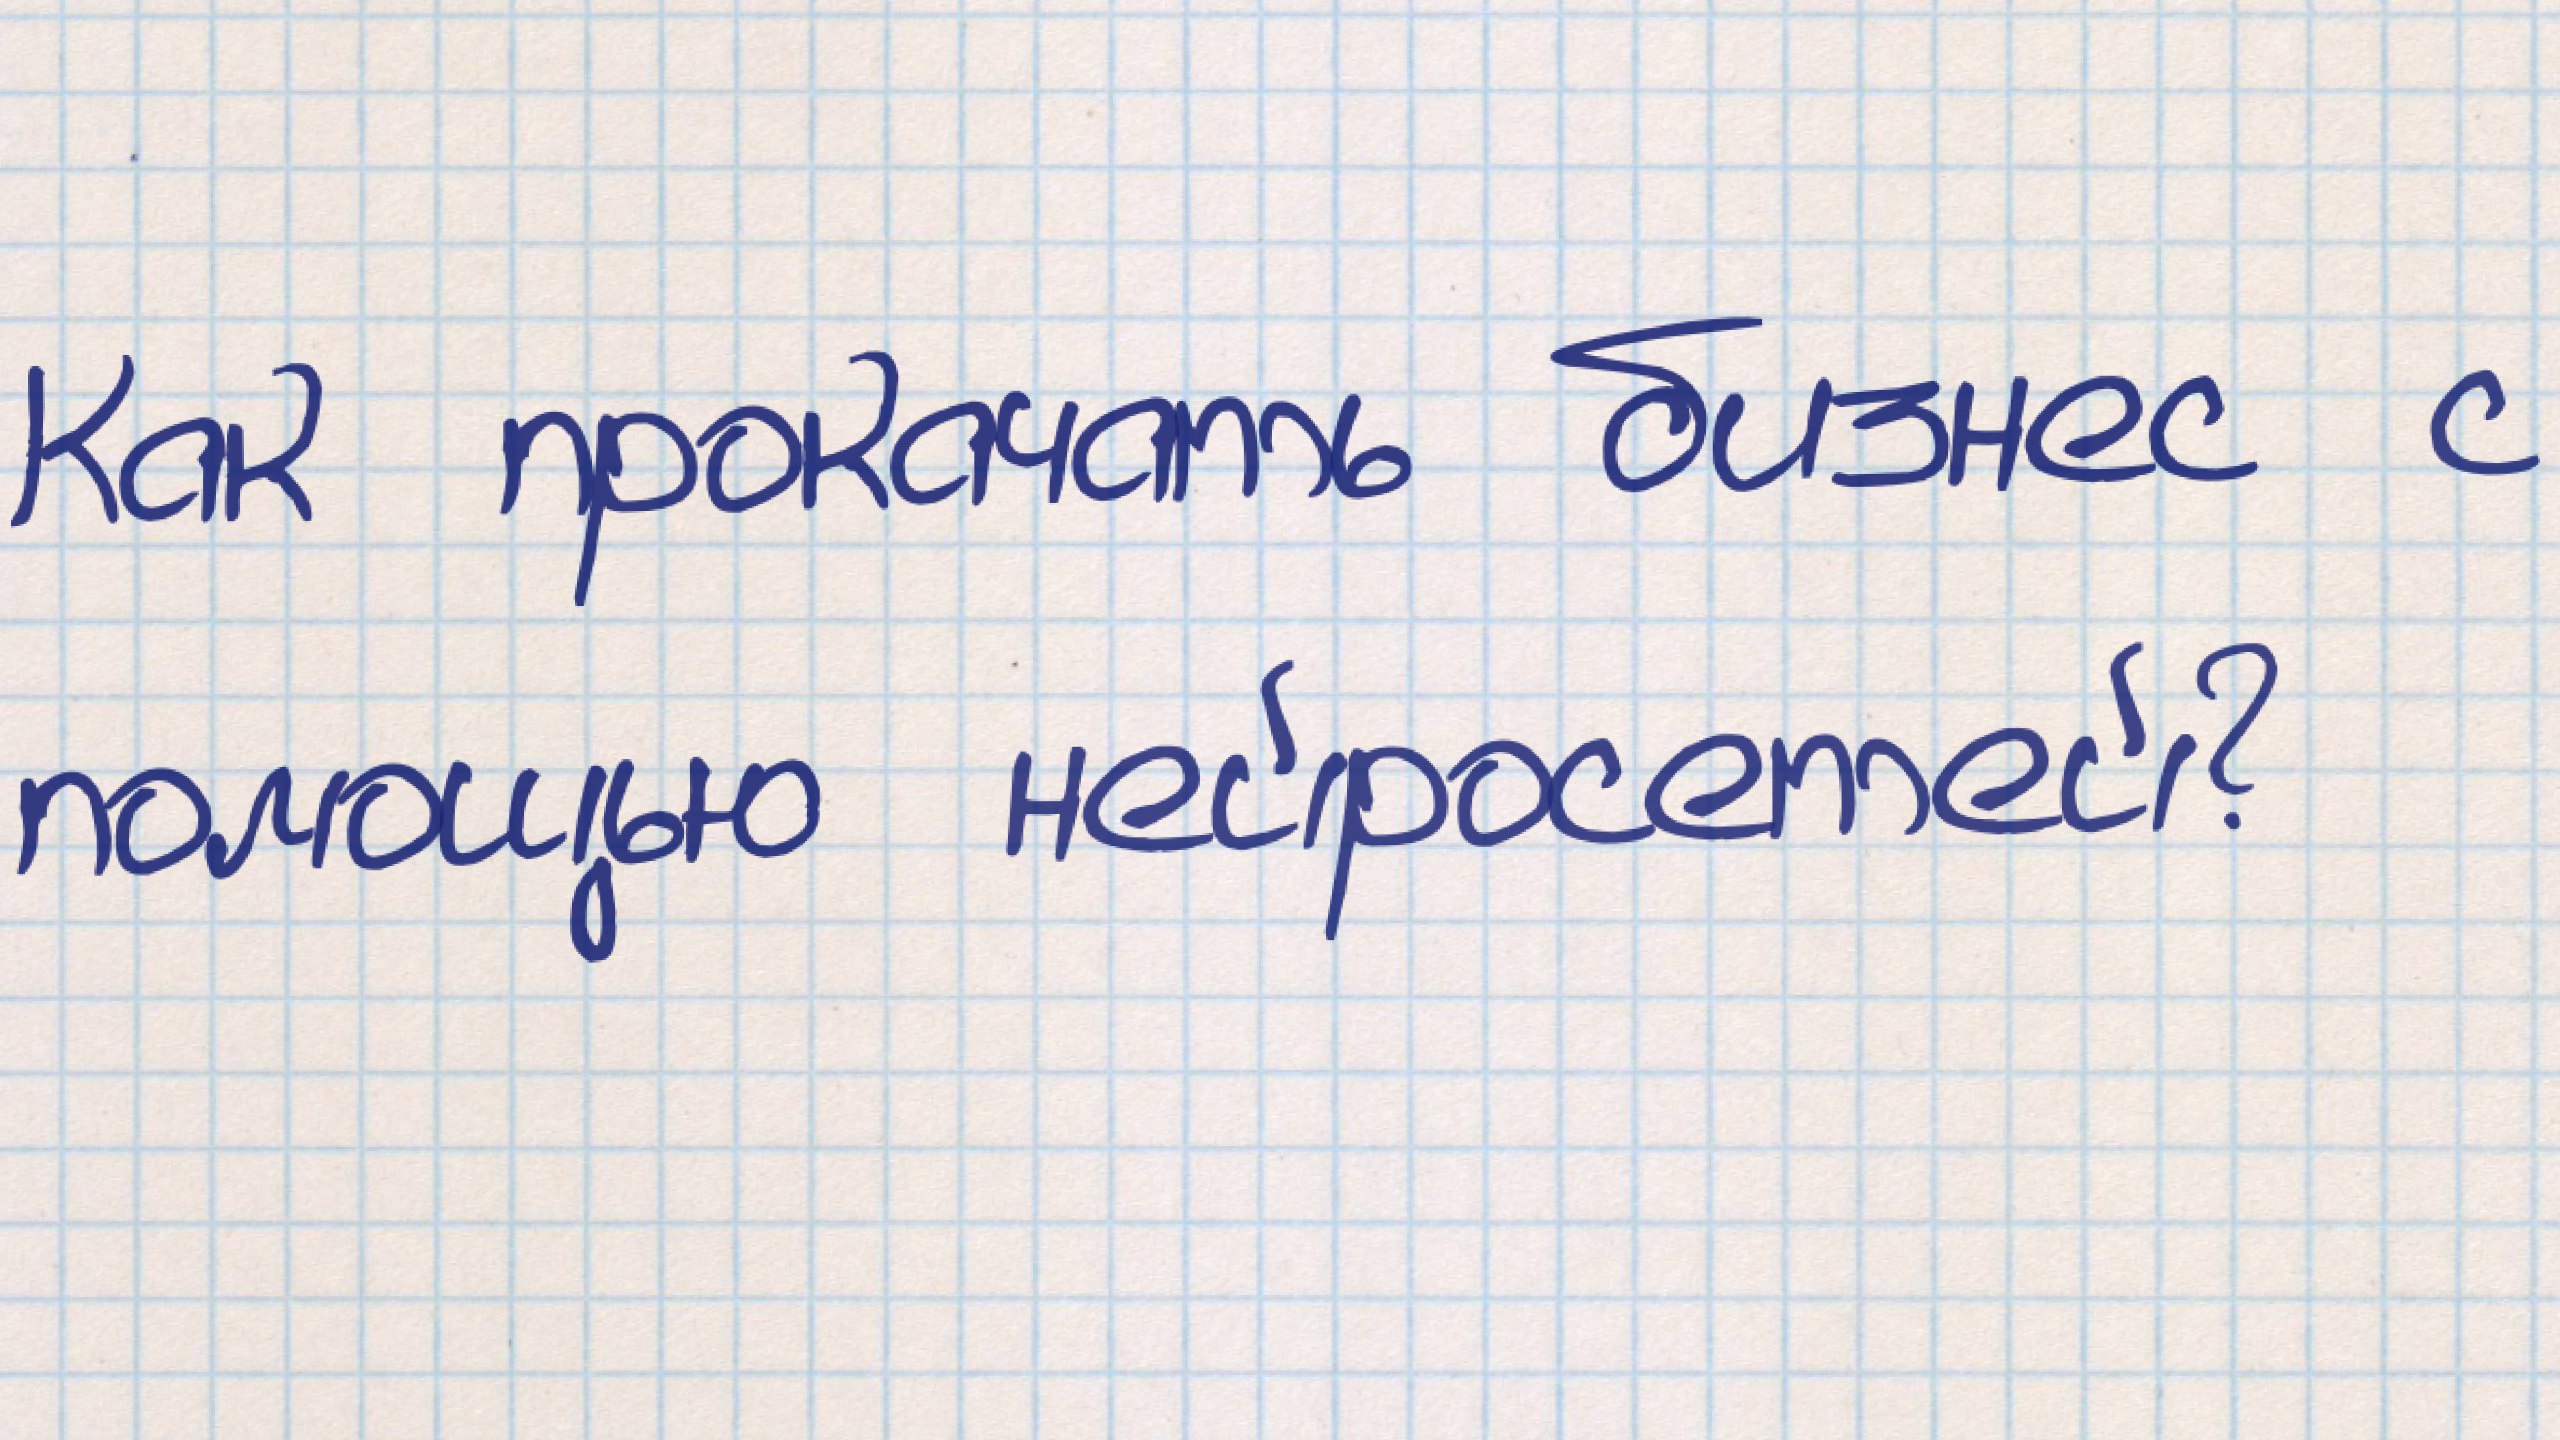 Как прокачать бизнес с
помощью нейросетей?